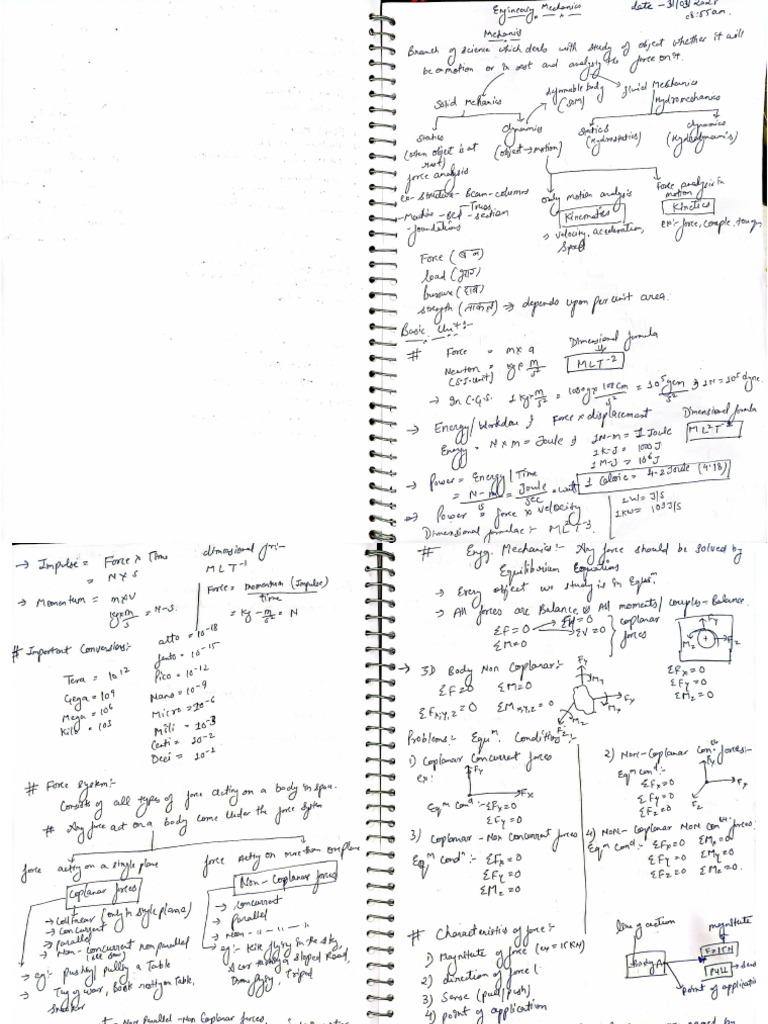 Engineering Mechanics
date - 31/03/202
08:55am.
Mechanics
Branch of science which deals with study of object whether it will
be a motion or in rest and analysis the force on it.
Solid Mechanics
(SOM)
fluid Mechanics
Hydromechanics
Statics
(when object is at
rest)
force analysis
ex- Structure - Beam - columns
- Truss
- section
- foundations
Dynamics
(object → motion)
Statics
(Hydrostatics)
dynamics
(Hydrodynamics)
Only motion analysis
Kinematics
→ velocity, acceleration,
speed
Force analysis in
motion
Kinetics
ex:- force, couple,
Force (बल)
load (भार)
pressure (दाब)
strength (ताकत) → depends upon per unit area.
Basic Unit:-
# Force = m x a
Newton = kg x m/s²
(S.I. unit)
Dimensional formula
MLT-2
→ In C.G.S. 1 kg x m/s² = 1000g x 100cm/s² = 10⁵ gcm/s² 1N = 10⁵ dyne.
→ Energy/Workdone } Force x displacement
Energy = N x m = Joule } 1N-m = 1 Joule
1K-J = 1000J
1M-J = 10⁶ J
Dimensional formula
ML²T-2
1 Calorie = 4.2 Joule (4.18)
→ Power = Energy/Time
= N-m/s = Joule/sec = watt
1W = J/s
1KW = 10³J/s
→ Power = force x velocity
Dimensional formulae:- ML²T-3
→ Impulse = Force x Time
= N x s
dimensional
MLT-1
→ Momentum = m x v
kg x m/s = N-S.
Force = momentum (Impulse)/time
= kg-m/s² = N
# Important Conversions:-
Tera = 10¹²
Gega = 10⁹
Mega = 10⁶
Kilo = 10³
atto = 10-18
femto = 10-15
Pico = 10-12
Nano = 10-9
Micro = 10-6
Mili = 10-3
Centi = 10-2
Deci = 10-1
# Force System:-
Consists of all types of force acting on a body in space.
# Any force act on a body come under the force system
force acting on a single plane
Coplanar forces
→ Collinear (only in single plane)
→ Concurrent
→ parallel
→ Non-concurrent non parallel
→ eg:- pushing/pulling a Table
→ Tug of war, Book resting on Table,
force acting on more than one plane
Non-Coplanar forces
→ Concurrent
→ Parallel
→ Non- " - " - "
→ eg:- Kite flying in the sky,
→ Car moving a sloped Road,
Drone flying, Tripod
Non Parallel - Non Coplanar forces,
# Engg. Mechanics:- Any force should be solved by
Equilibrium Equations
→ Every object we study is in Equn.
→ All forces are Balance & All moments/couples - Balance.
ΣF = 0
ΣH = 0
ΣV = 0
ΣM = 0
coplanar
forces
Fy
Fx
Mz
ΣFx = 0
ΣFy = 0
ΣMz = 0
→ 3D Body Non Coplanar:-
ΣF = 0 ΣM = 0
ΣFx,y,z = 0 ΣMx,y,z = 0
Fy
My
Fx
Mx
Mz
Fz
Problems:- Equn. Conditions:-
1) Coplanar Concurrent forces
ex:
Fy
Fx
Eqn cond:- ΣFx = 0
ΣFy = 0
2) Non-Coplanar Con. forces:-
Eqn cond:-
ΣFx = 0
ΣFy = 0
ΣFz = 0
Fy
Fz
3) Coplanar - Non Concurrent forces
Eqn cond:- ΣFx = 0
ΣFy = 0
ΣMz = 0
4) NON- Coplanar NON con. forces
Eqn cond:- ΣFx = 0 ΣMx = 0
ΣFy = 0 ΣMy = 0
ΣFz = 0 ΣMz = 0.
# Characteristics of force:-
1) Magnitute of force (ex = 15KN)
2) direction of force
3) Sense (pull/push)
4) point of application
line of action
magnitute
Body A
F=15KN
PULL
point of applicatio